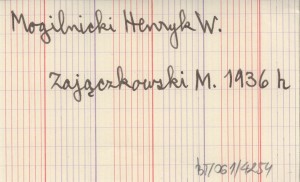 Mogilnicki Henryk W.
Zajączkowski M. 1936 h
bT/061/4254